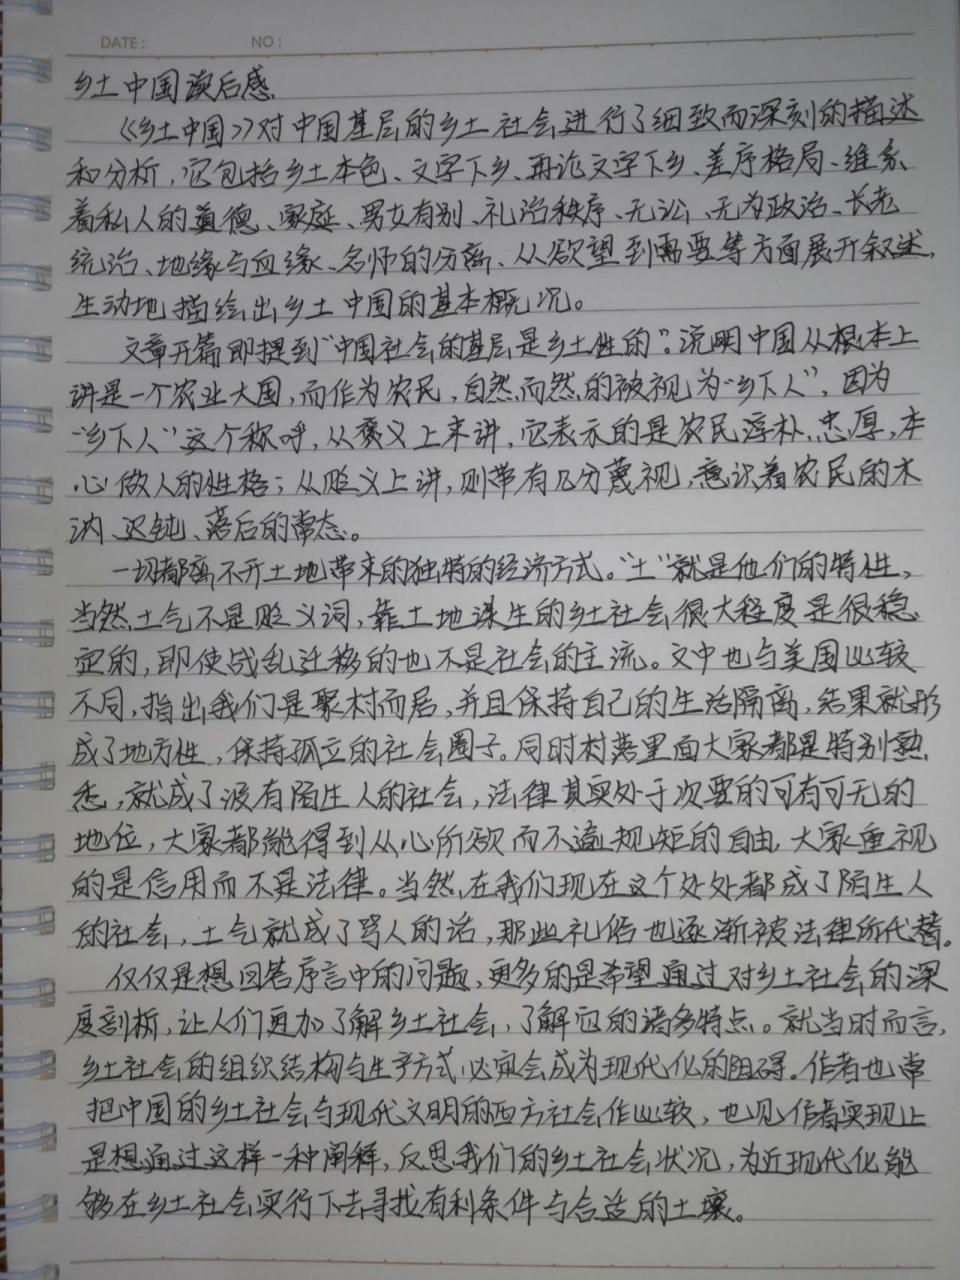 DATE: NO:
乡土中国读后感
《乡土中国》对中国基层的乡土社会进行了细致而深刻的描述
和分析,它包括乡土本色、文字下乡、再论文字下乡、差序格局、维系
着私人的道德、家庭、男女有别、礼治秩序、无讼、无为政治、长老
统治、地缘与血缘、名师的分离、从欲望到需要等方面展开叙述,
生动地描绘出乡土中国的基本概况。
文章开篇即提到"中国社会的基层是乡土性的"。说明中国从根本上
讲是一个农业大国,而作为农民,自然而然的被视为"乡下人",因为
"乡下人"这个称呼,从褒义上来讲,它表示的是农民淳朴、忠厚,本
心做人的性格;从贬义上讲,则带有几分蔑视,意识着农民的木
讷、迟钝、落后的常态。
一切都离不开土地带来的独特的经济方式。"土"就是他们的特性,
当然土气不是贬义词,靠土地谋生的乡土社会很大程度是很稳
定的,即使战乱迁移的也不是社会的主流。文中也与美国比较
不同,指出我们是聚村而居,并且保持自己的生活隔离,结果就形
成了地方性,保持孤立的社会圈子。同时村落里面大家都是特别熟
悉,就成了没有陌生人的社会,法律其实处于次要的可有可无的
地位,大家都能得到从心所欲而不逾规矩的自由,大家重视
的是信用而不是法律。当然,在我们现在这个处处都成了陌生人
的社会,土气就成了骂人的话,那些礼俗也逐渐被法律所代替。
仅仅是想回答序言中的问题,更多的是希望通过对乡土社会的深
度剖析,让人们更加了解乡土社会,了解它的诸多特点。就当时而言,
乡土社会的组织结构与生产方式必定会成为现代化的阻碍。作者也常
把中国的乡土社会与现代文明的西方社会作比较,也见作者实现上
是想通过这样一种阐释,反思我们的乡土社会状况,为近现代化能
够在乡土社会实行下去寻找有利条件与合适的土壤。